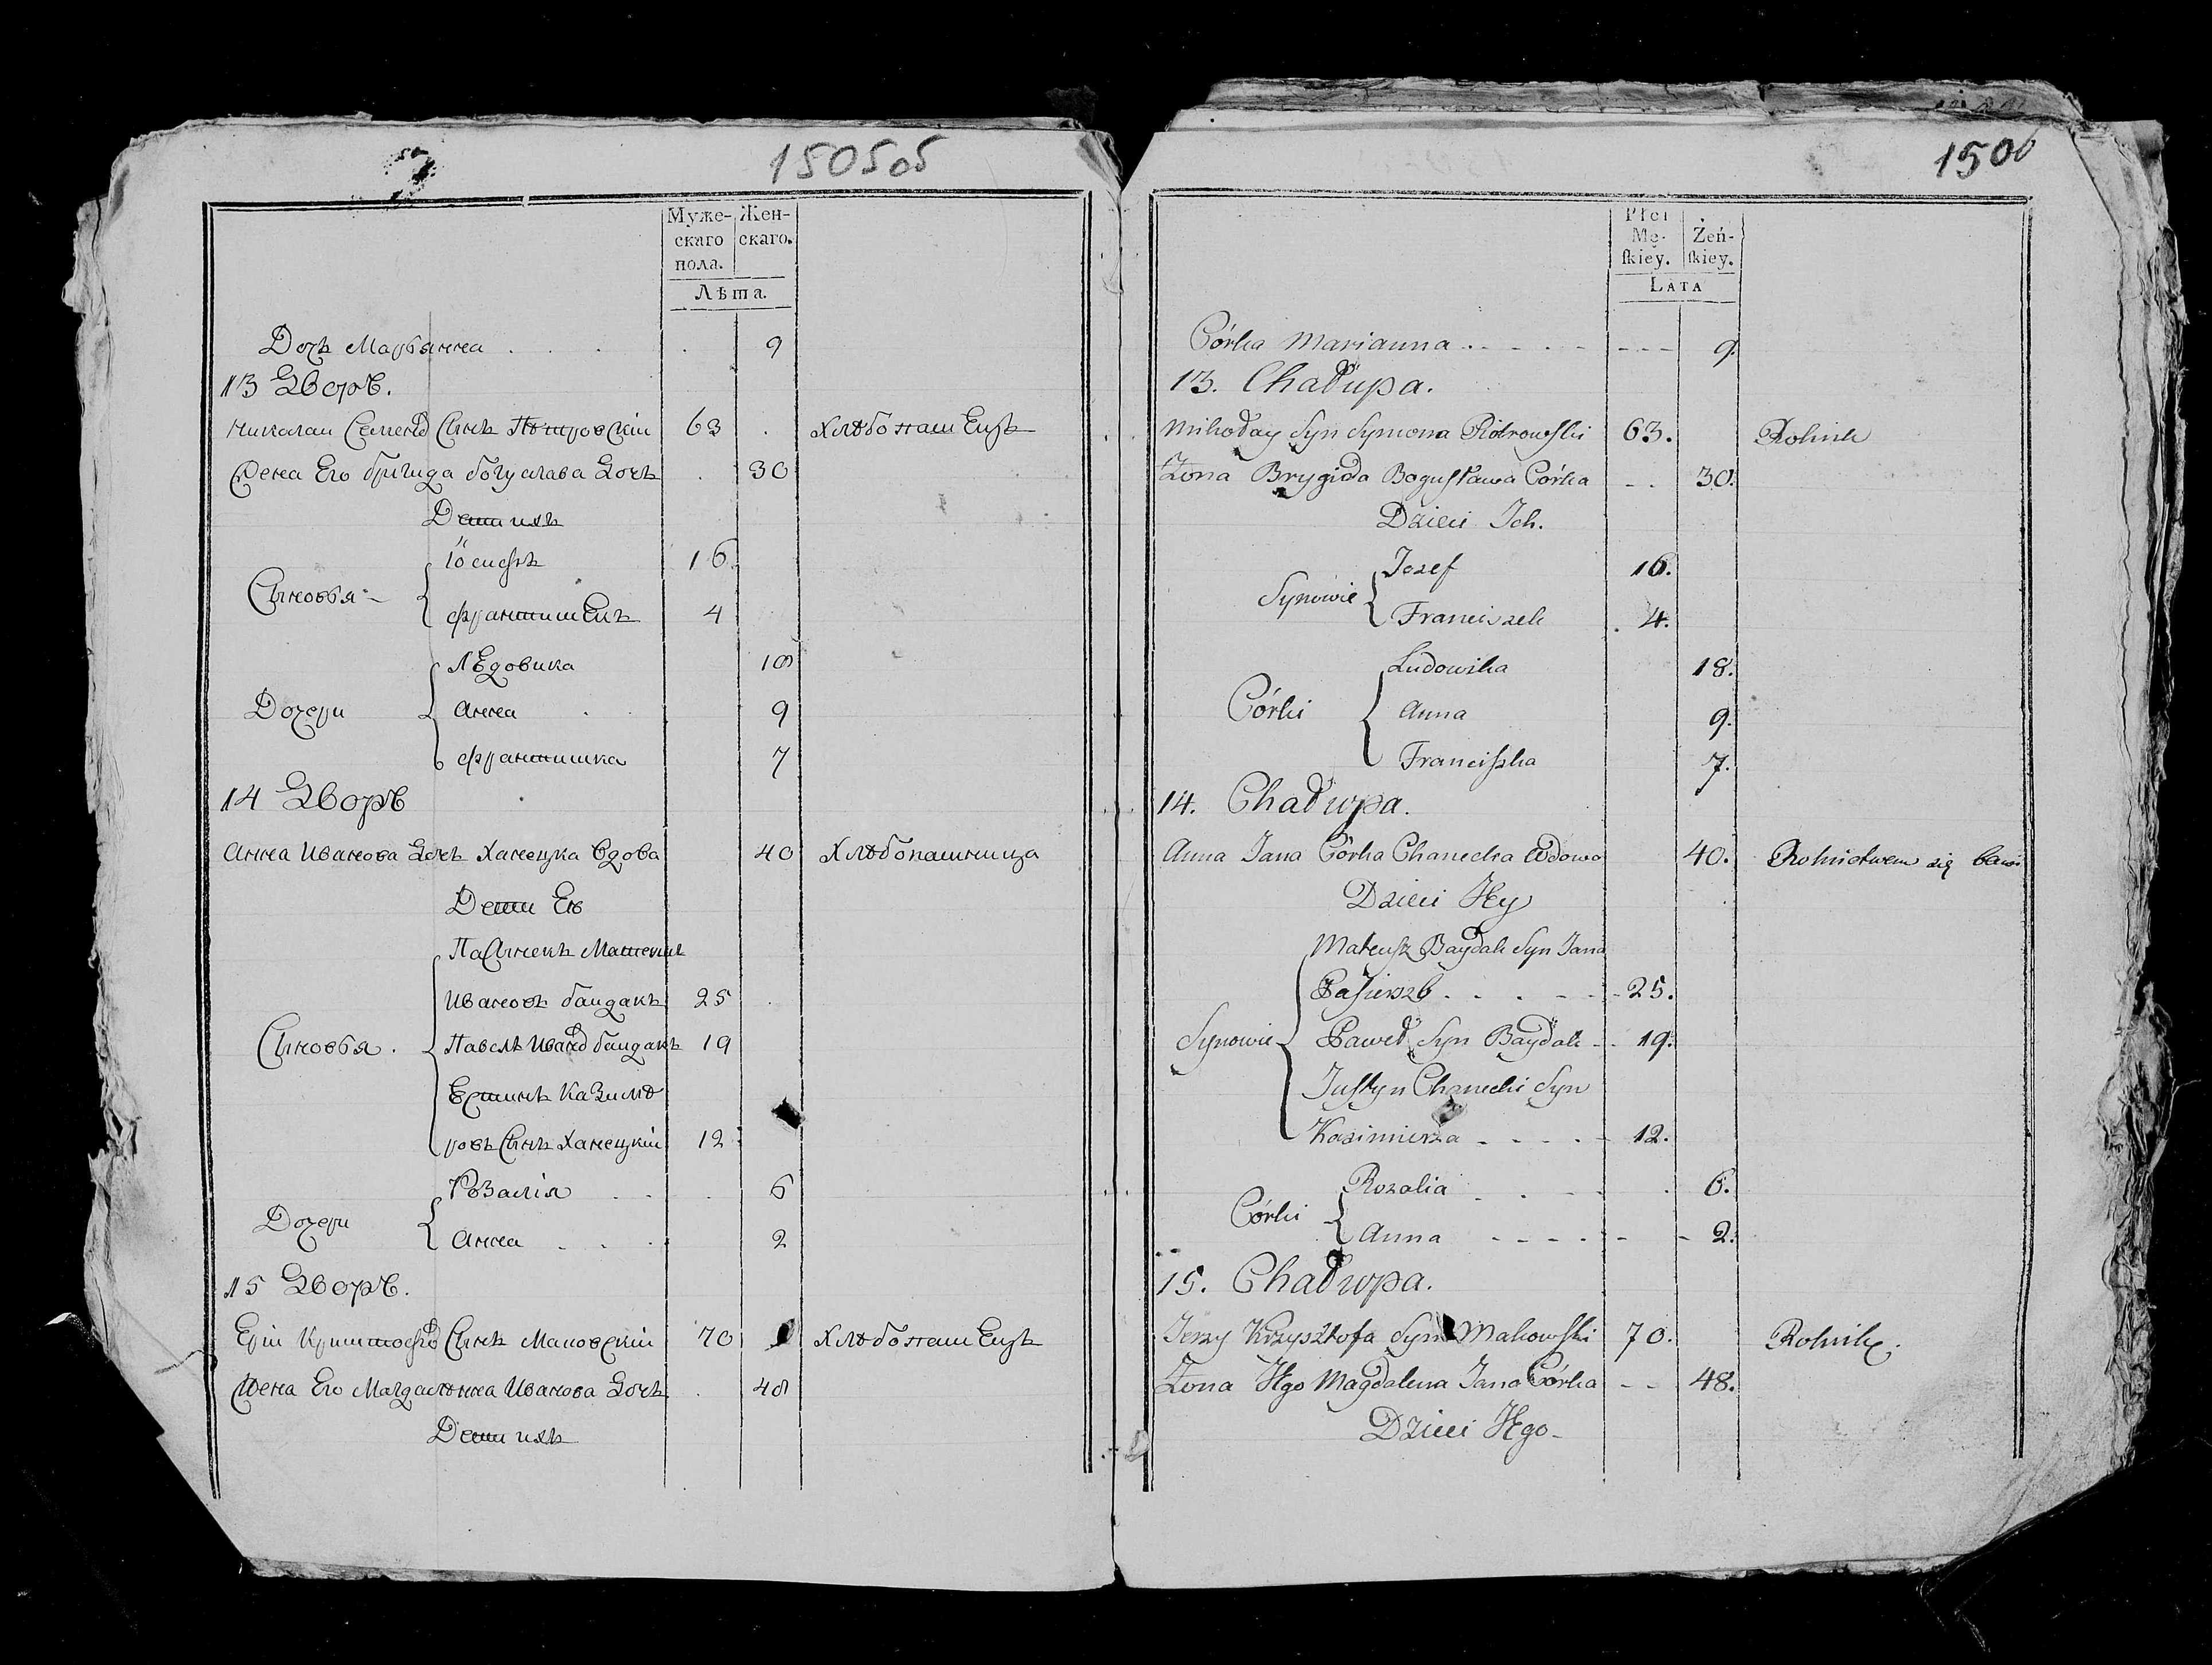 150505
Муже-
скаго
пола.
Жен-
скаго.
Лѣта.
Дочь Марьянна . . . . 9
13 Дворъ.
Николай Семеновъ Сынъ Пѣтровскій 63 . Хлѣбопашецъ
Жена Его бригида богуслава Дочь . 30
Дети ихъ
Сыновья
Іосифъ 16
францишекъ 4
Дочери
Людовика 18
Анна . . 9
францишка 7
14 Дворъ
Анна Иванова Дочь Ханецка вдова 40 Хлѣбопашница
Дети Ею
Сыновья .
Пасынокъ Матеушъ
Ивановъ байдакъ 25
Павелъ Иванов байдакъ 19
Юстинъ Казимѣ
ровъ Сынъ Ханецкій 12
Дочери
Розалія . . . 6
Анна . . . 2
15 Дворъ.
Ерій Криштофов Сынъ Маковскій 70 Хлѣбопашецъ
Жена Его Магдалѣнна Иванова Дочь . 48
Дети ихъ
1506
Płci
Mę-
skiey.
Żeń-
skiey.
LATA
Córka Marianna . - - . - - - - 9.
13. Chałupa.
Mikołay Syn Symona Piotrowski 63. Rolnik
Żona Brygida Bogusława Córka - - 30.
Dzieci Ich.
Synowie
Jozef 16.
Franciszek 4.
Córki
Ludowika 18.
Anna 9.
Franciszka 7.
14. Chałupa.
Anna Jana Córka Chanecka Wdowa 40. Rolnictwem się bawi
Dzieci Jey
Synowie
Mateusz Baydak Syn Jana
Pasierzb . . . - - 25.
Paweł Syn Baydak - - 19.
Justyn Chanecki Syn
Kazimierza - - - . - 12.
Córki
Rozalia . . - - . 6.
Anna - - - - - - 2.
15. Chałupa.
Jerzy Krzysztofa Syn Makowski 70. Rolnik.
Żona Jego Magdalena Jana Córka - - 48.
Dzieci Jego -